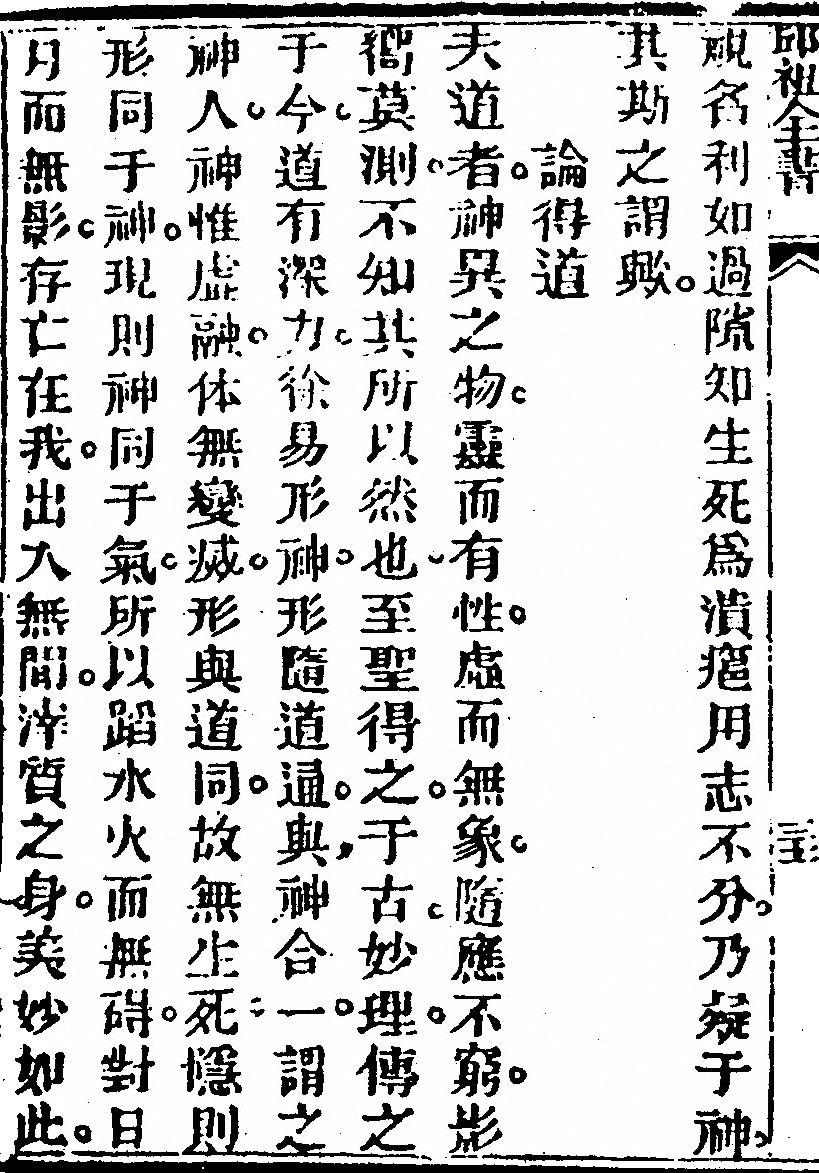 邱祖全書
視名利如過隙知生死為潰癰用志不分乃凝于神
其斯之謂歟
論得道
夫道者神異之物靈而有性虛而無象隨應不窮影
嚮莫測不知其所以然也至聖得之于古妙理傳之
于今道有深力徐易形神形隨道通與神合一謂之
神人神惟虛融体無變滅形與道同故無生死隱則
形同于神現則神同于氣所以蹈水火而無碍對日
月而無影存亡在我出入無間滓質之身美妙如此